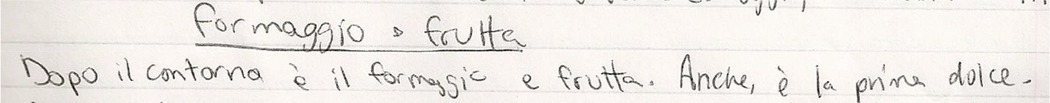 formaggio o frutta
Dopo il contorna è il formaggio e frutta. Anche, è la prima dolce.